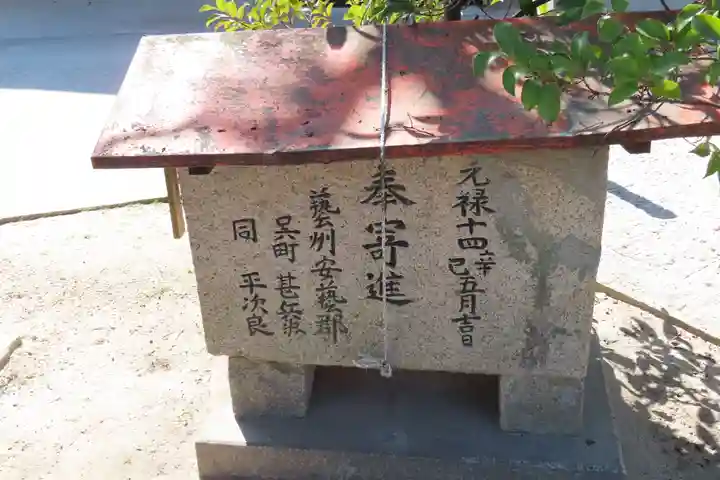 元禄十四辛巳五月吉日
奉寄進
藝州安藝郡
呉町 甚兵衛
同 平次良